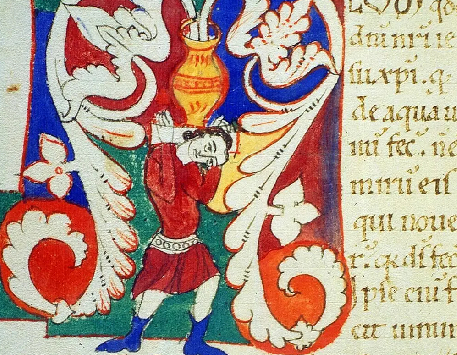 qd
dni nri ie
su xpi. q
de aqua u
nu fec. ne
miru eis
qui noue
r. di fec
pse eni f
cit uinum